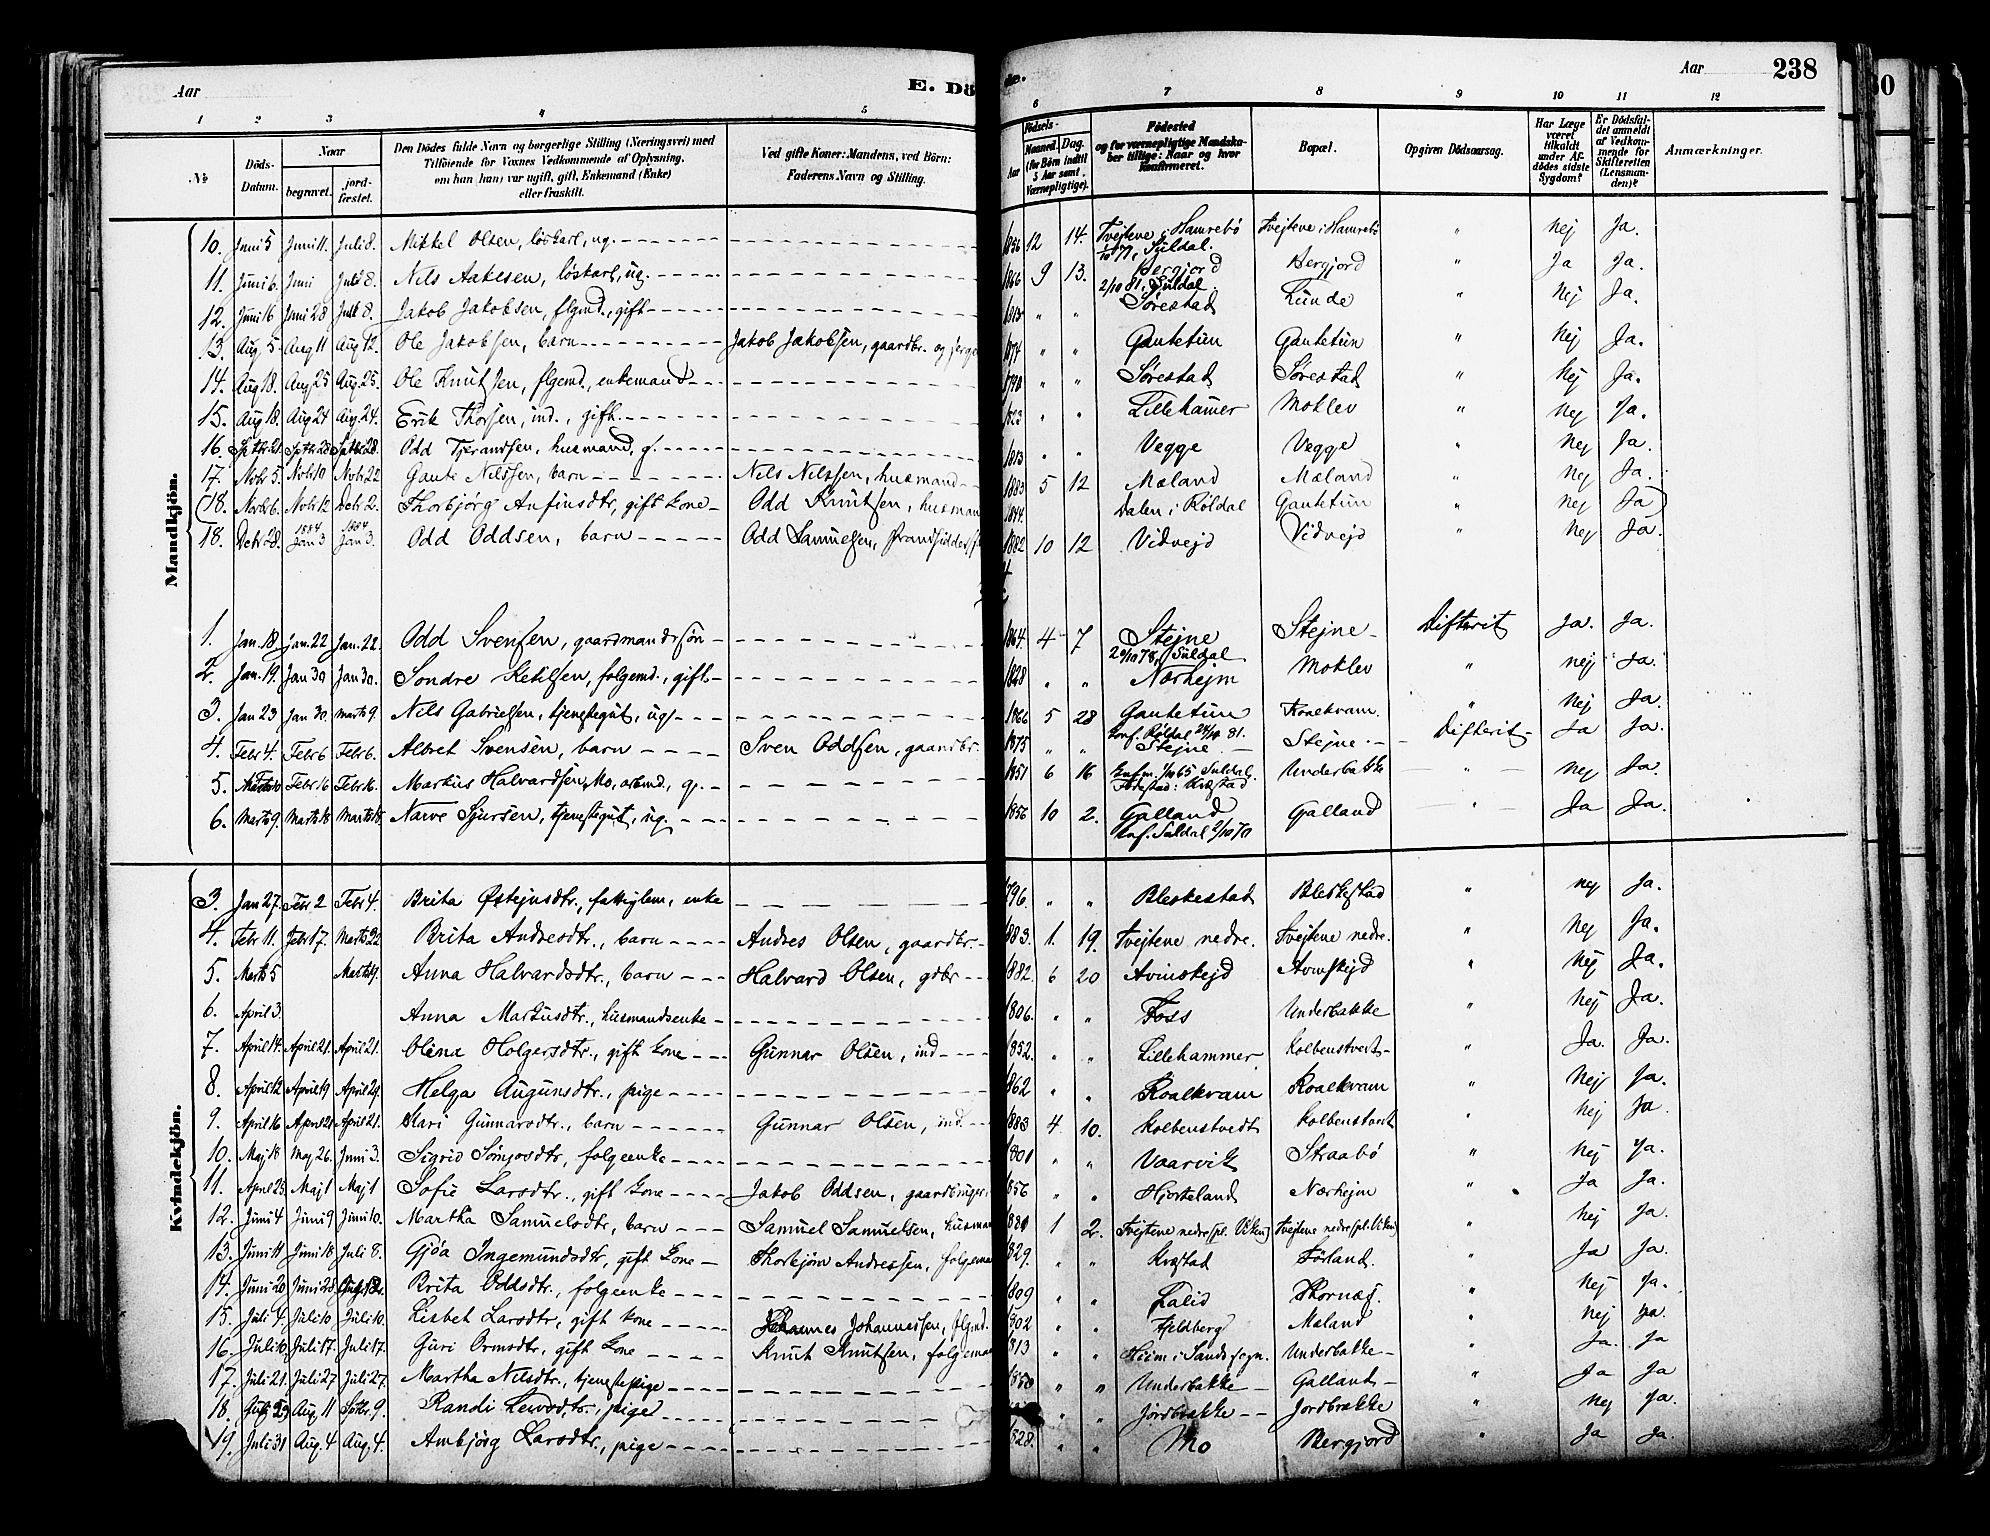 Aar
E. Dö
Aar
238
1 2 3 4 5 6 7 8 9 10 11 12
No
Döds-Datum.
Naar
begravet.
jord-fæstet.
Den Dödes fulde Navn og borgerlige Stilling (Næringsvei) med
Tilföiende for Voxnes Vedkommende af Oplysning.
om han (hun) var ugift, gift, Enkemand (Enke)
eller fraskilt.
Ved gifte Koner: Mandens, ved Börn:
Faderens Navn og Stilling.
Födsels-
Aar Maaned. Dag.
(for Börn indtil
5 Aar samt
Værnepligtige).
Födested
og for værnepligtige Mandska-
ber tillige: Naar og hvor
Konfirmeret.
Bopæl.
Opgiven Dödsaarsag.
Har Læge
været
tilkaldt
under Af-
dödes sidste
Sygdom?
Er Dödsfal-
det anmeldt
af Vedkom-
mende for
Skifteretten
(Lensman-
den)?
Anmærkninger.
Mandkjön.
10. Juni 5 Juni 11. Juli 8. Mikkel Olsen, løskarl, ug. 1856 12 14. Tvejtene i Hamrebø Tvejtene i Hamrebø " Nej Ja.
Suldal.
11. Juni 6. Juni Juli 8. Nils Aakesen, løskarl, ug. 1866 9 13. Bergjord Bergjord " Ja Ja.
2/10 81, Suldal.
12. Juni 16 Juni 28 Juli 8. Jakob Jakobsen, flgmd., gift 1813 " " Sørestad Lunde " Nej Ja.
13. Aug. 5 Aug 11 Aug 12. Ole Jakobsen, barn Jakob Jakobsen, gaardbr. og 1874 " " Gautetun Gautetun " Nej Ja.
14. Aug 18. Aug 25 Aug. 25. Ole Knutsen, flgmd., enkemand 1790 " " Sørestad Sørestad " Nej Ja.
15. Aug 18. Aug 24 Aug. 24. Erik Thorsen, ind., gift. 1823 " " Lillehamer Moklev " Nej Ja.
16. Septbr 21. Septbr 28 Septbr 28. Odd Tjerandsen, husmand, g. 1813 " " Vegge Vegge " Nej Ja.
17. Novbr 5. Novbr 10 Novbr 22 Gaute Nilssen, barn Nils Nilssen, husmand 1883 5 12 Mæland Mæland " Nej Ja.
(18. Novbr 6. Novbr 12 Decbr 2. Thorbjørg Anfinsdtr, gift kone Odd Knutsen, husman 1844. Dalen i Røldal Gautetun " Nej Ja)
18. Decbr 28. 1884 Jan 3 1884 Jan 3. Odd Oddsen, barn Odd Samuelsen, Strandsidder 1882 10 12 Vidvejd Vidvejd " Nej Ja.
1. Jan. 18. Jan. 22 Jan. 22. Odd Svensen, gaardmandssøn 1864 4 7 Stejne Stejne Difterit Ja. Ja.
20/10 78, Suldal
2. Jan. 19. Jan 30 Jan 30. Sondre Ketilsen, folgemd., gift 1828 " " Nærhejm Moklev " nej Ja.
3. Jan 23 Jan 30. Marts 9. Nils Gabrielsen, tjenstegut, ug. 1866 5 28 Gautetun Roalkvam. " Nej Ja.
konf. Røldal 24/10 81.
4. Febr 4. Febr 6 Febr 6. Albret Svensen, barn Sven Oddsen, gaardbr. 1875 " " Stejne Stejne Difterit Ja Ja.
5. Febr 10 Febr 16 Febr 16. Markus Halvardsen Mo, arbmd, g. 1851 6 16 Konfirm. 1/10 65 Suldal. Underbakke " Nej Ja.
Fødestad: Kvæstad
6. Marts 9. Marts 18 Marts 18. Narve Sjursen, tjenstegut, ug. 1856 10 2. Galland Galland " Ja Ja.
Konf. Suldal 2/10 70
Kvindekjön.
3. Jan 27. Febr 2 Febr 4. Brita Østejnsdtr., fattiglem, enke 1796. " " Bleskestad Bleskestad " nej Ja.
4. Febr 11. Febr 17. Marts 22 Brita Andresdtr., barn Andres Olsen, gaardbr. 1883. 1. 19. Tvejtene nedre. Tvejtene nedre. " Nej Ja.
5. Marts 5 Marts 9. Anna Halvardsdtr., barn Halvard Olsen, gdbr 1882. 6 20 Avinskejd Avinskejd " Nej Ja.
6. April 3. Anna Markusdtr., husmandsenke 1806. " " Foss Underbakke " Nej Ja.
7. April 14. April 21. April 21. Olina Holgersdtr., gift kone Gunnar Olsen, ind 1852. " " Lillehammer Kolbenstvedt " Ja. Ja.
8. April 12 April 19 April 29. Helga Augunsdtr., pige 1862 " " Roalkvam Roalkvam " Nej Ja.
9. April 16 April 21 April 21. Kari Gunnarsdtr., barn Gunnar Olsen, ind. 1883 4. 10. Kolbenstvedt Kolbenstvedt " Nej Ja
10. Maj 18 Maj 26. Juni 3. Sigrid Sørjosdtr, folgeenke 1801 " " Vaarvik Straabø " Nej Ja.
11. April 23. Maj 1 Maj 1 Sofie Larsdtr., gift kone Jakob Oddsen, gaardbruger. 1856 " " Hjorteland Nærhejm " Ja Ja.
12. Juni 4 Juni 9 Juni 10. Martha Samuelsdtr, barn Samuel Samuelsen, husman 1880 1 2. Tvejtene nedre (pl. Viken) Tvejtene nedre (pl. Viken) " Nej Ja.
13. Juni 11 Juni 18 Juli 8. Gjøa Ingemundsdtr, gift kone Thorbjørn Andreassen, folgeman 1829. " " Kvæstad Førland. " Ja Ja.
14. Juni 20 Juni 28 Brita Oddsdtr., folgeenke 1809 " " Lalid " Nej Ja.
15. Juli 4. Juli 10. Juli 10. Lisbet Larsdtr, gift kone Johannes Johannessen, flgmd. 1802 " " Fjeldberg Mæland " Nej Ja.
16. Juli 10. Juli 17. Juli 17. Guri Ormsdtr, gift kone Knut Knutsen, folgeman 1813 " " Heim i Sands sogn. Underbakke " Ja. Ja
17. Juli 21. Juli 27 Juli 27. Martha Nilsdtr., tjenestepige 1850 " " Underbakke Galland " Ja Ja
18. Juli 29 Aug. 11 Septbr. 9. Randi Larsdtr., pige " " Jordbrække Jordbrække " nej Ja.
19. Juli 31 Aug. 4 Aug. 4. Ambjørg Larsdtr., pige 1828. " " Mo Bergjord " Ja Ja.